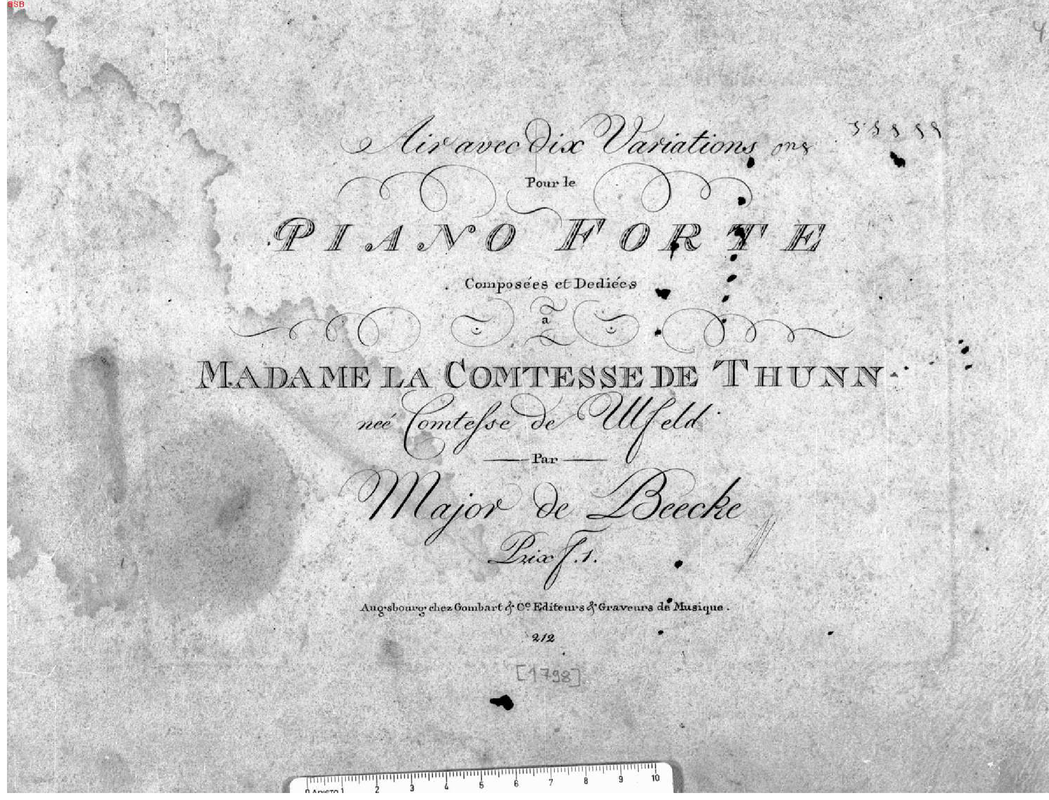 BSB
4
Air avec dix Variations
Pour le
PIANO FORTE
Composées et Dediées
a
MADAME LA COMTESSE DE THUNN
neé Comtesse de Ulfeld
Par
Major de Beecke
Prix f. 1.
Augsbourg chez Gombart & Co. Editeurs & Graveurs de Musique.
212
[1798]
0 ARISTO 1 2 3 4 5 6 7 8 9 10